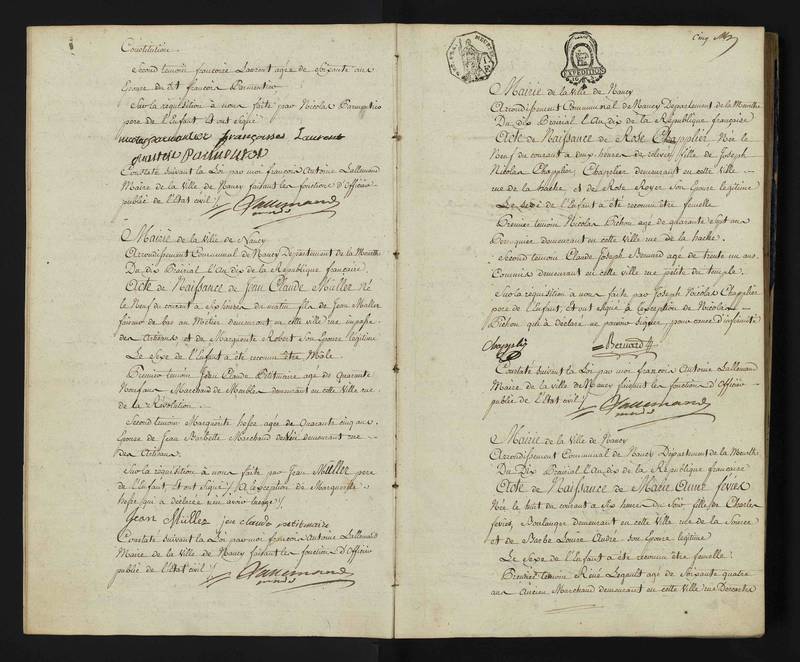 Constitution.
Second temoin françoise Laurent agée de Soixante ans
Epouse du dit françois Parmentier
Sur la requisition à nous faite par Nicolas Parmentier
pere de l'Enfant, et ont Signé
parmantier françoisse Laurent
Parmentier
Constaté suivant la Loi par moi françois Antoine Lallemand
Maire de la Ville de Nancy faisant les fonctions d'Officier
public de l'Etat civil
Lallemand
Mairie de la Ville de Nancy
Arrondissement Communal de Nancy Département de la Meurthe
Du Dix Prairial l'An dix de la République française
Acte de Naissance de Jean Claude Muller Né
le Neuf du courant à Six heures du matin fils de Jean Muller
faiseur de bas au Métier demeurant en cette ville rue impasse
des Artisans et de Margueritte Robert Son Epouse légitime
Le Sexe de l'Enfant a été reconnu être Mâle.
Premier temoin Jean Claude Petitmaire agé de Quarante
Neuf ans Marchand de Meubles demeurant en cette Ville rue
de la Révolution.
Second temoin Margueritte agée de Quarante cinq ans
Epouse de Jean Barbette Marchand demeurant rue
des Artisans.
Sur la requisition à nous faite par Jean Muller pere
de l'Enfant, et ont Signé à l'exception de Margueritte
qui a déclaré n'en avoir l'usage
Jean Müller jean claude petitmaire
Constaté suivant la Loi par moi françois Antoine Lallemand
Maire de la Ville de Nancy faisant les fonctions d'Officier
public de l'Etat civil
Lallemand
Cinq
EXPEDITION
Mairie de la Ville de Nancy
Arrondissement Communal de Nancy Departement de la Meurthe
Du Dix Prairial l'An dix de la République française
Acte de Naissance de Rose Chapplier, Née le
Neuf du courant à onze heures de relevée, fille de Joseph
Nicolas Chapplier, Chapelier demeurant en cette Ville
rue de la hache et de Rose Royer Son Epouse legitime
Le Sexe de l'Enfant a été reconnu être femelle
Premier temoin Nicolas Pichon agé de quarante Sept ans
Perruquier demeurant en cette ville rue de la hache.
Second temoin Claude Joseph Bernard agé de trente un ans
Commis demeurant en cette ville rue petite du temple.
Sur la réquisition à nous faite par Joseph Nicolas Chapplier
pere de l'Enfant, et ont Signé à l'exception de Nicolas
Pichon qui a déclaré ne pouvoir signer, pour cause d'infirmité
Chapplier
Bernard
Constaté suivant la Loi par moi françois Antoine Lallemand
Maire de la ville de Nancy faisant les fonctions d'Officier
public de l'Etat civil
Lallemand
Mairie de la Ville de Nancy
Arrondissement Communal de Nancy Département de la Meurthe
Du Dix Prairial l'An Dix de la République francaise
Acte de Naissance de Marie Anne féviés
Née le huit du courant à Six heures du Soir fille de Charles
féviés, Boulanger demeurant en cette Ville rue de la Source
et de Barbe Louise Andre Son Epouse legitime
Le Sexe de l'Enfant a été reconnu être femelle.
Premier temoin René Legault agé de Soixante quatre
ans Ancien Marchand demeurant en cette Ville rue Descartes